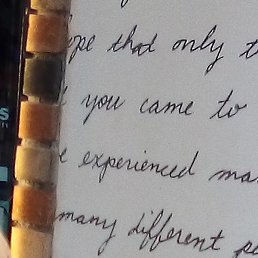 that only
you came to
experienced
many different